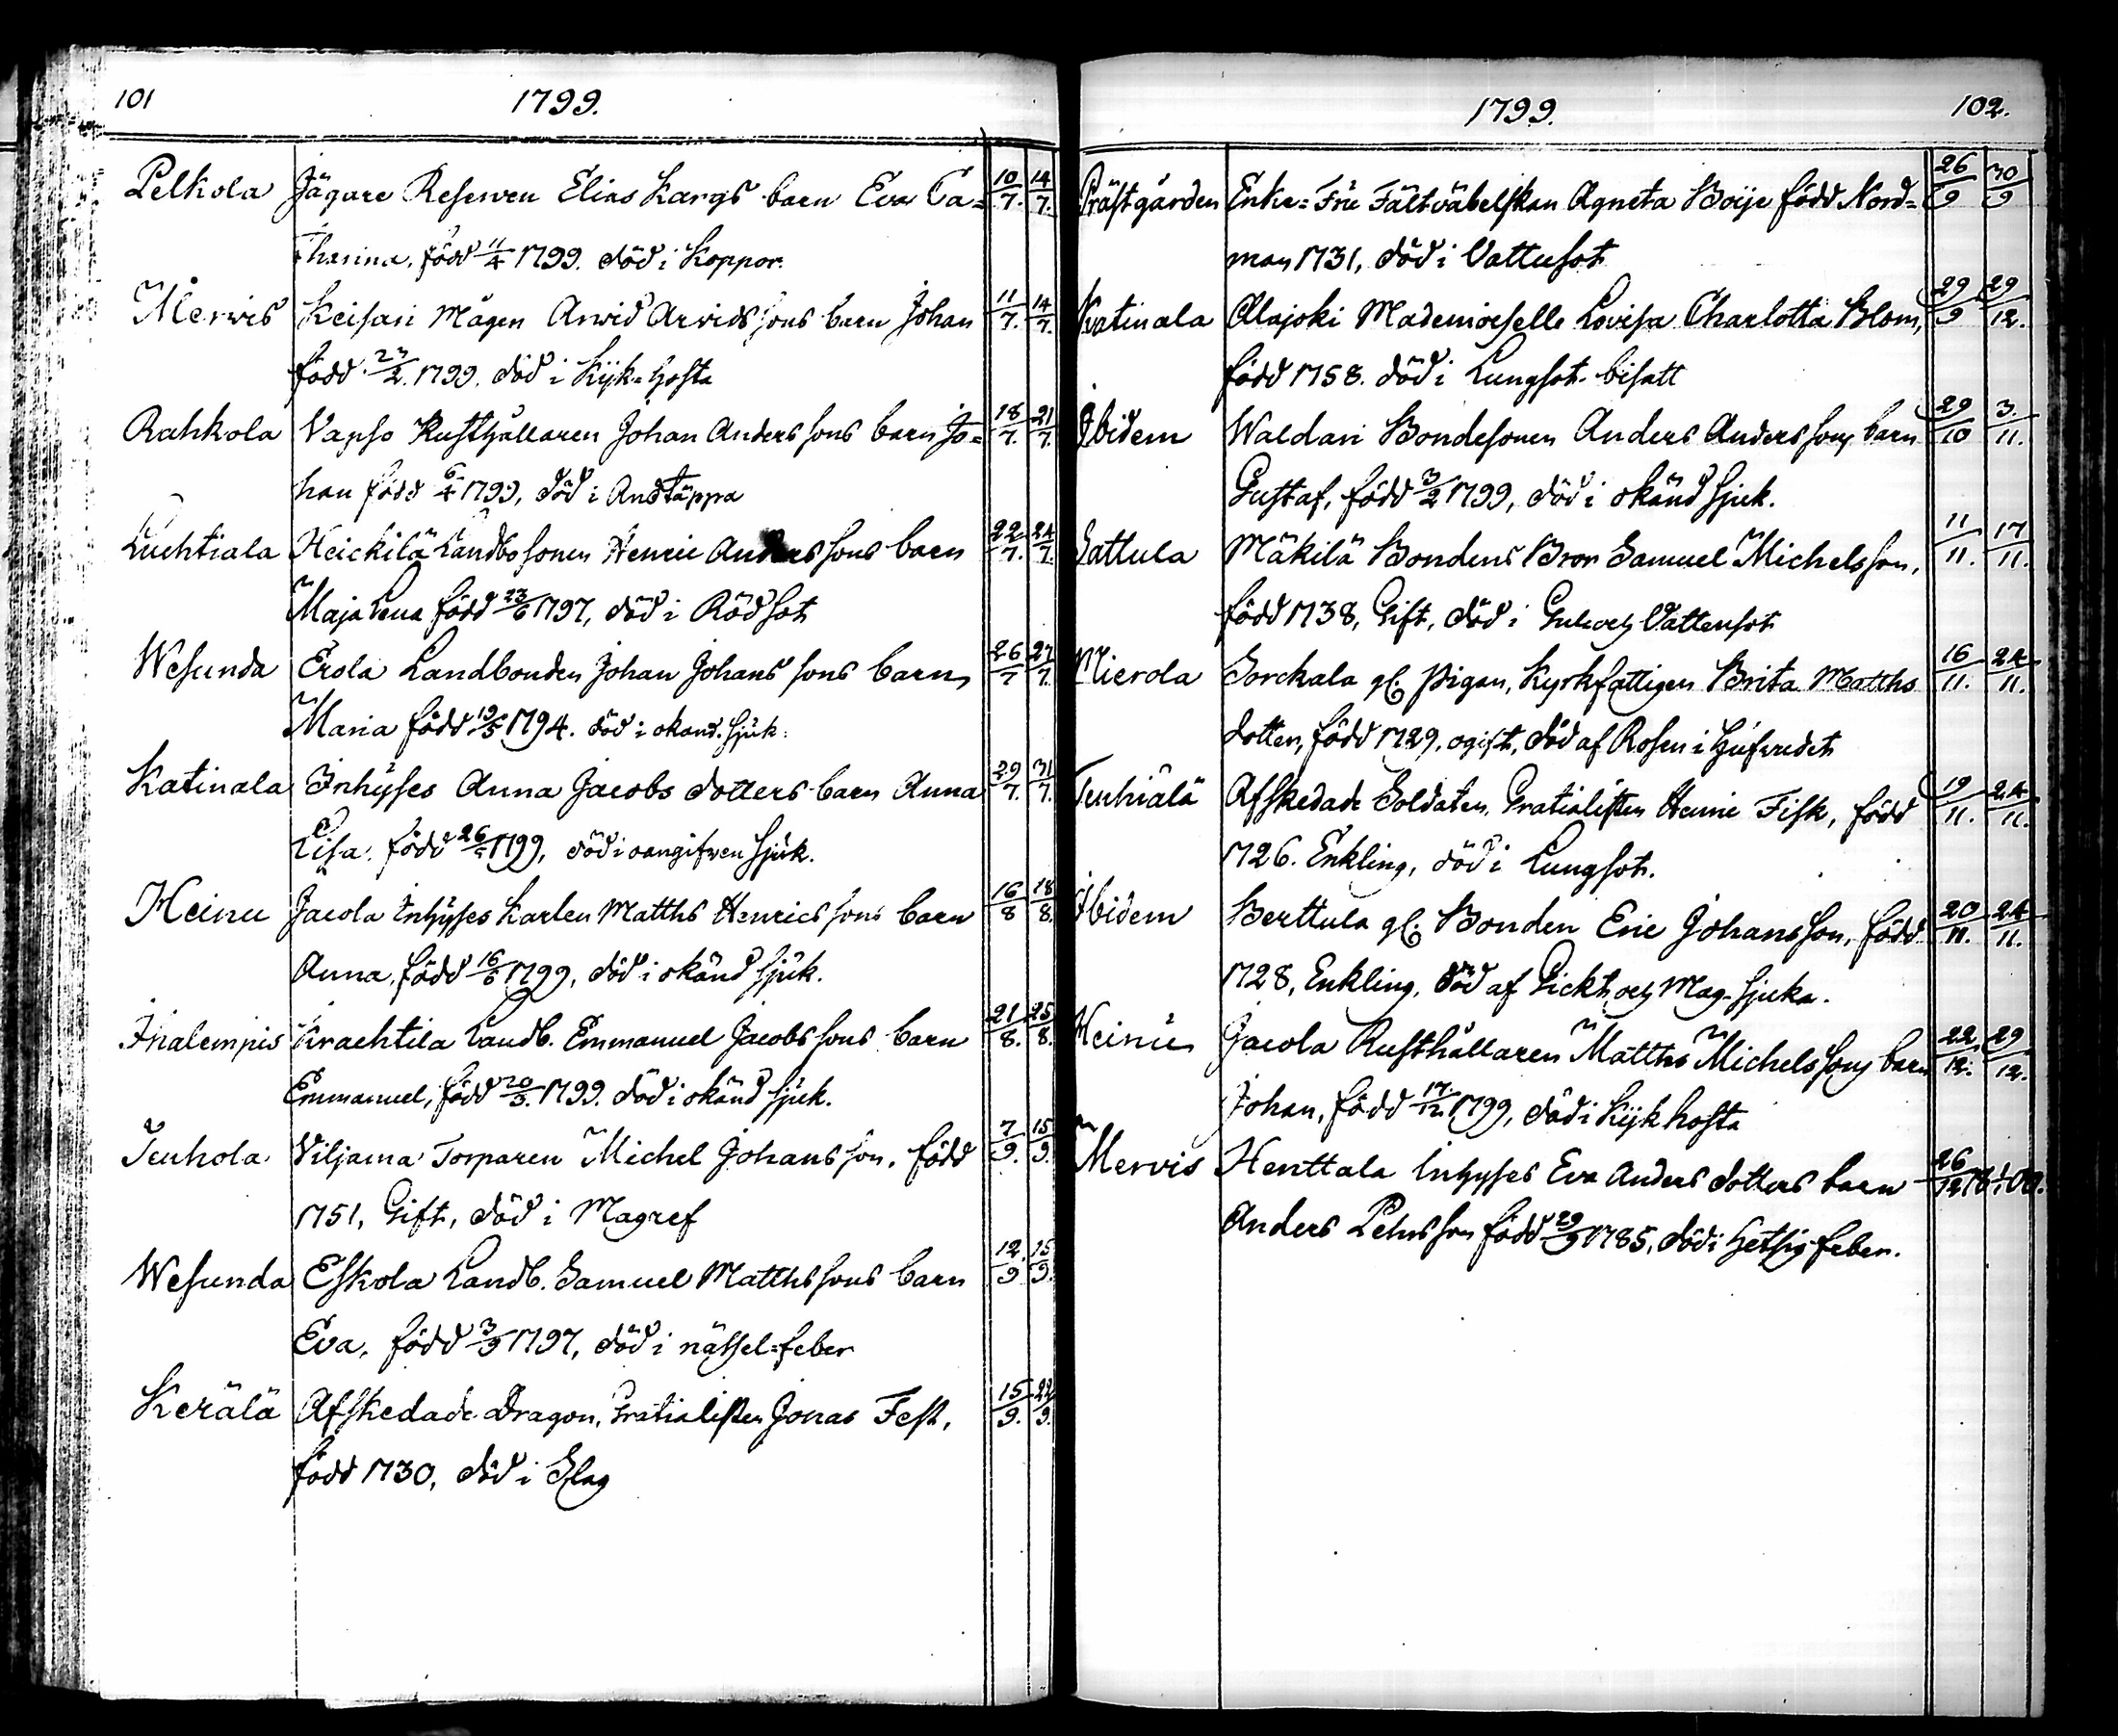 101 1799.
Pelkola Jägare Reserven Elias Kargs barn Eva Ca= 10/7. 14/7.
tharina, född 11/4 1799. död i Koppor.
Merwis Keisari Mågen Arvid Arvids sons barn Johan 11/7. 14/7.
född 23/2. 1799. död i Kijk=hosta
Rahkola Vapso Rusthållaren Johan Anders sons barn Jo= 18/7. 21/7.
han född 6/4 1799, död i Andtäppa
Luehtiala Heickilä Landbosonen Henric Anders sons barn 22/7. 24/7.
Maja Lena född 23/6 1797, död i Rödsot
Wesunda Erola Landbonden Johan Johans sons barn 26/7 27/7.
Maria född 19/5 1794. död i okänd. sjuk:
Katinala Inhyses Anna Jacobs dotters barn Anna 29/7. 31/7.
Lisa. född 26/5 1799, död i oangifwen sjuk.
Heinu Jacola Inhyses Karlen Matths Henrics sons barn 16/8 18/8
Anna, född 16/6 1799, död i okänd sjuk.
Ihalempis Krachtila Landb. Emmanuel Jacobs sons barn 21/8. 25/8.
Emmanuel, född 20/5. 1799. död i okänd sjuk.
Tenhola Viljama Torparen Michel Johans son, född 7/9. 15/9.
1751, Gift, död i Magref
Wesunda Eskola Landb. Samuel Matths sons barn 12/9 15/9.
Eva, född 3/9 1797, död i nässel=feber
Kerälä Afskedade Dragon, Gratialisten Jonas Fest, 15/9. 22/9.
född 1730, död i Slag
1799. 102.
Prästgården Enke=Fru Fältväbelskan Agneta Boije född Nord= 26/9 30/9
man 1731, död i Vattusot
Katinala Alajoki Mademoiselle Lovisa Charlotta Blom, 29/9 29/12.
född 1758. död i Lungsot. bisatt
Ibidem Waldari Bondesonen Anders Anderssons barn 29/10 3./11.
Gustaf, född 3/2 1799, död i okänd sjuk.
Sattula Mäkilä Bondens Bror Samuel Michelsson, 11/11. 17/11.
född 1738, Gift, död i Gul och Vattensot
Mierola Sorckala gl. Pigan, Kyrkfattigen Brita Matths 16/11. 24/11.
dotter, född 1729, ogift, död af Rosen i hufvudet
Tenhiälä Afskedade Soldaten, Gratialisten Henric Fisk, född 19/11. 24/11.
1726. Enkling, död i Lungsot.
Ibidem Berttula gl. Bonden Eric Johansson, född 20/11. 24/11.
1728, Enkling, död af Gickt och Mag-sjuka.
Heinu Jacola Rusthållaren Matths Michelssons barn 22/12. 29/12.
Johan, född 17/12. 1799, död i Kijkhosta
Mervis Henttala Inhyses Eva Anders dotters barn 26/12
Anders Pehrsson född 29/9 1785, död i hetsig feber.